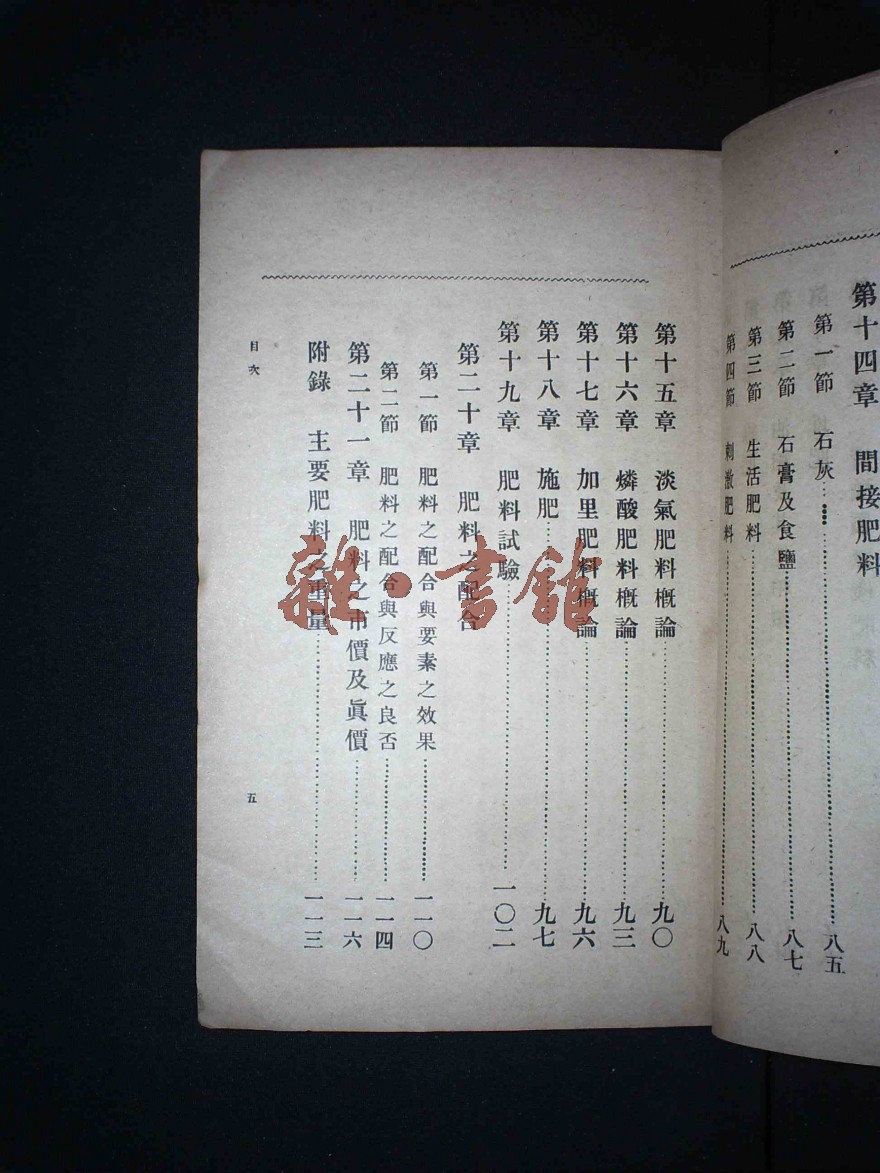 第十四章　間接肥料
第一節　石灰……八五
第二節　石膏及食鹽……八七
第三節　生活肥料……八八
第四節　刺激肥料……八九
第十五章　淡氣肥料槪論……九〇
第十六章　燐酸肥料槪論……九三
第十七章　加里肥料槪論……九六
第十八章　施肥……九七
第十九章　肥料試驗……一〇二
第二十章　肥料之配合
第一節　肥料之配合與要素之效果……一一〇
第二節　肥料之配合與反應之良否……一一四
第二十一章　肥料之市價及眞價……一一六
附錄　主要肥料之重量……一一三
目次
五
雜·書館